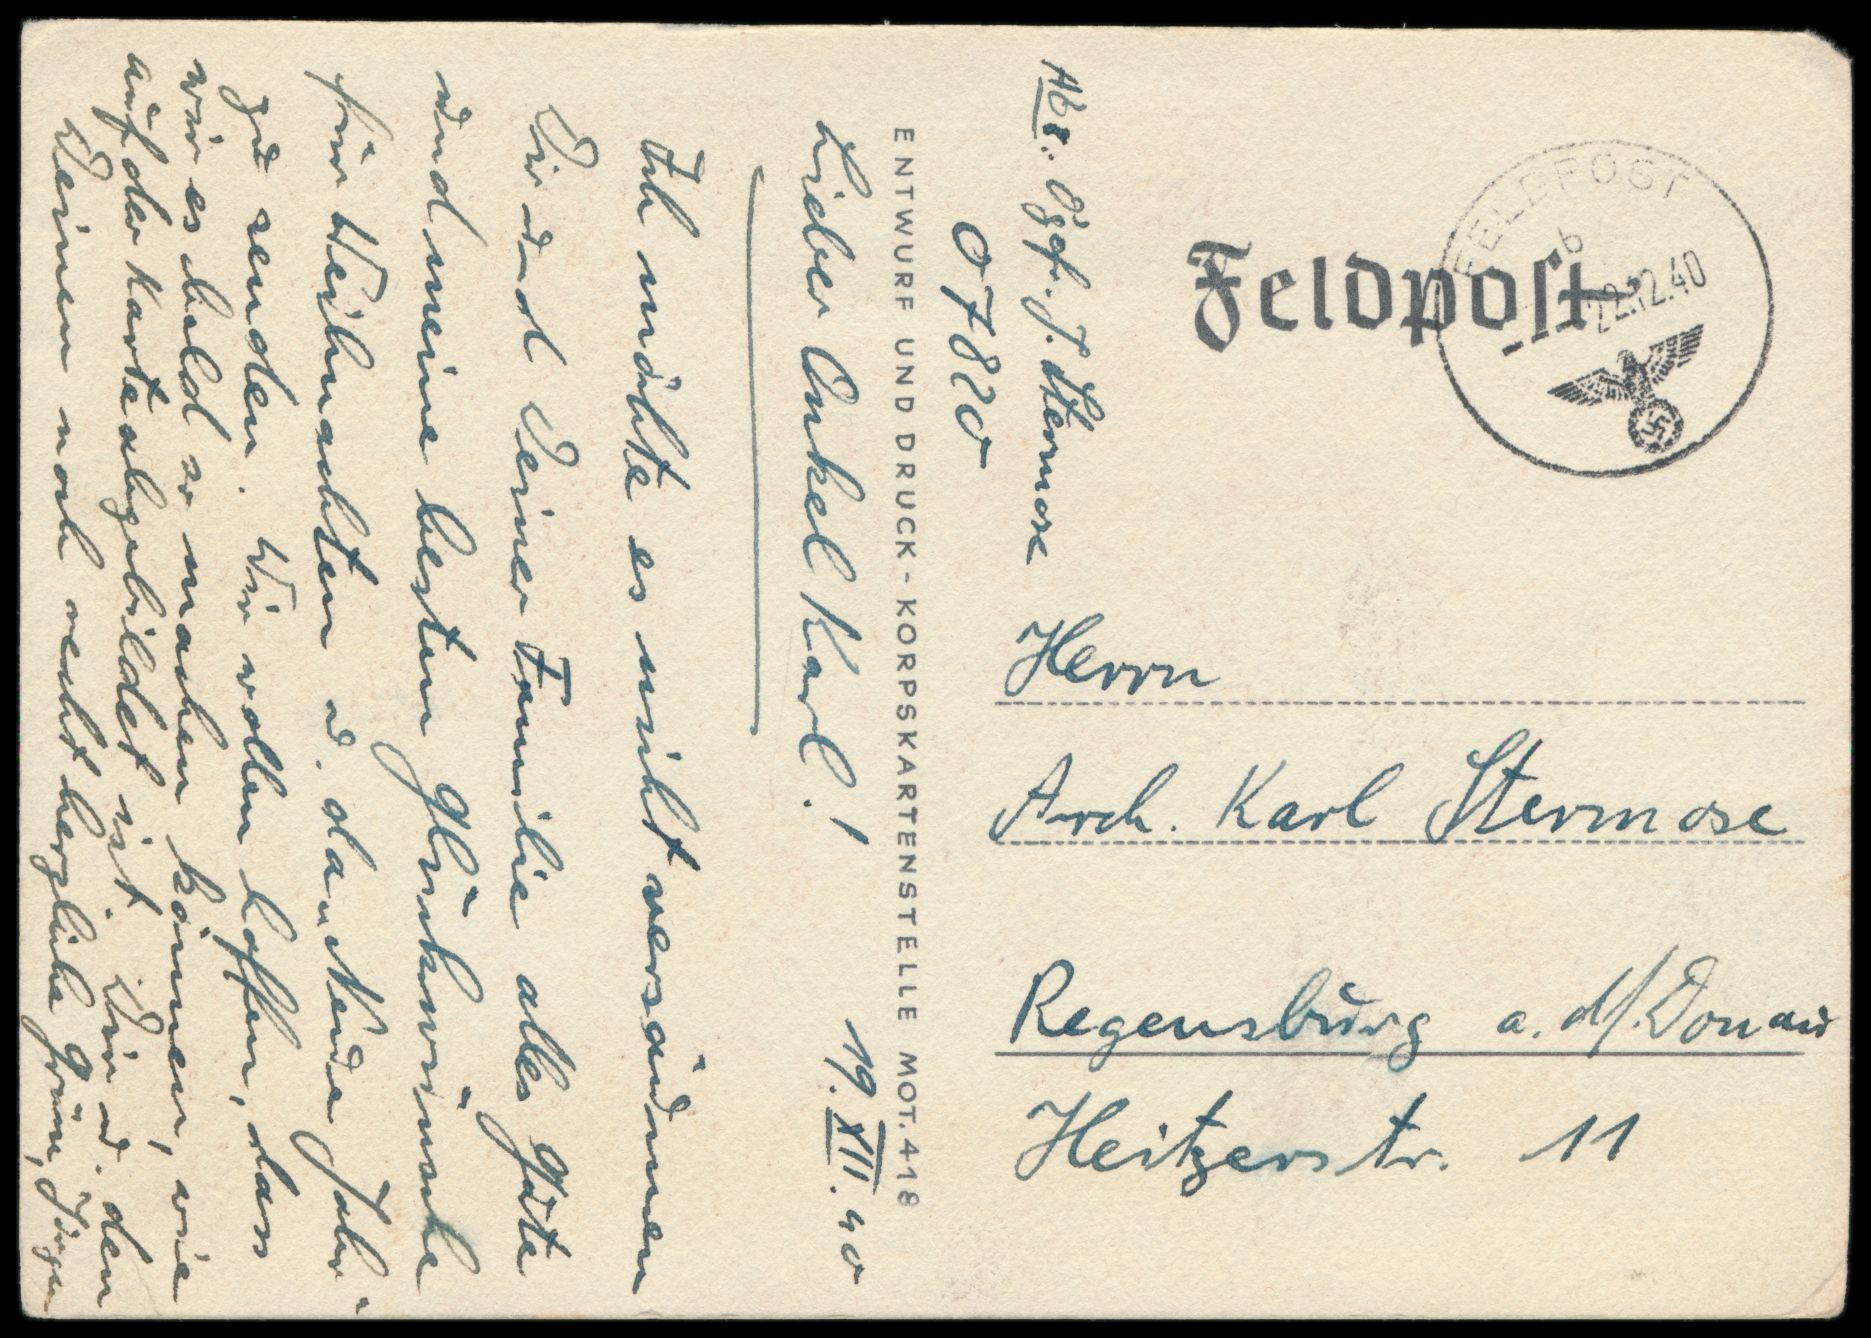 Feldpost
FELDPOST
b
22.12.40
Abs. Ogfr. J. Stermose
07820
Herrn
Arch. Karl Stermose
Regensburg a. d/. Donau
Heitzerstr. 11
ENTWURF UND DRUCK - KORPSKARTENSTELLE MOT. 418
19. XII. 40
Lieber Onkel Karl!
Ich möchte es nicht versäumen
Dir und Deiner Familie alles Gute
und meine besten Glückwünsche
für Weihnachten u. das Neue Jahr
zu senden. Wir wollen hoffen, dass
wir es bald so machen können, wie
auf der Karte abgebildet ist. Dir u. den
Deinen noch recht herzliche Grüsse, Jürgen